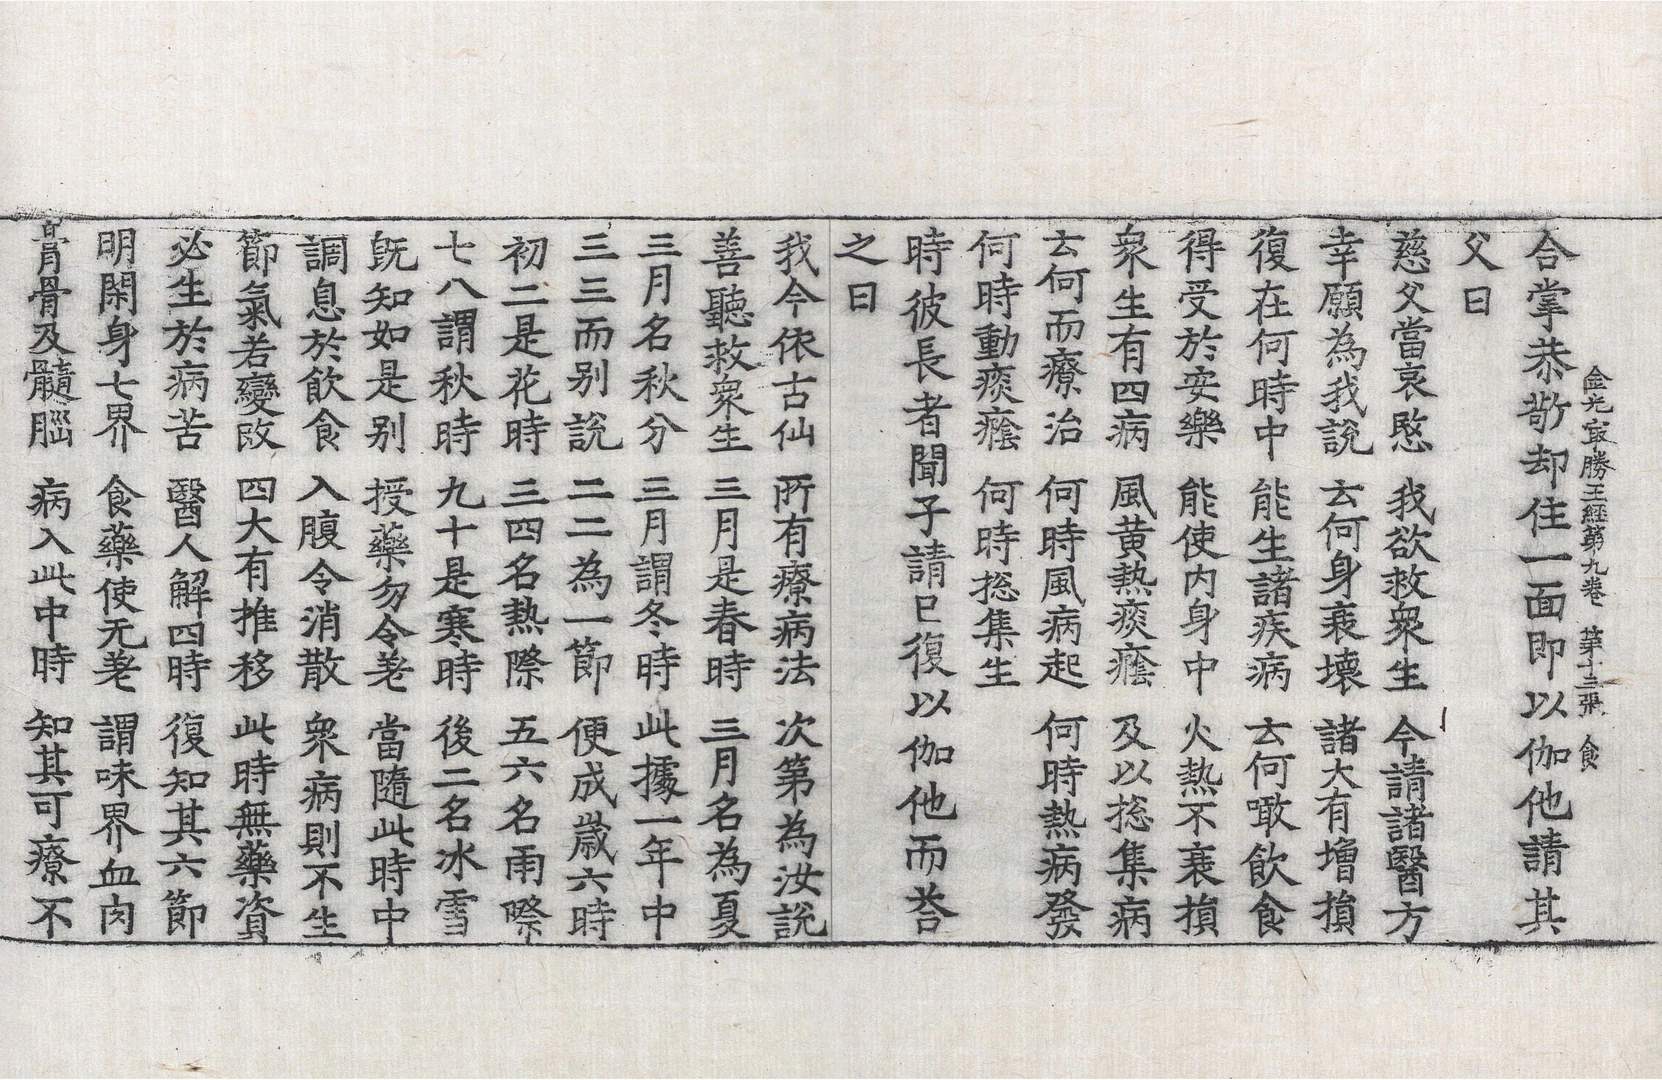 金光㝡勝王經第九卷　第十三張　食
合掌恭敬却住一面即以伽他請其
父曰
慈父當哀愍　我欲救衆生　今請諸醫方
幸願為我說　云何身衰壞　諸大有增損
復在何時中　能生諸疾病　云何噉飲食
得受於安樂　能使内身中　火熱不衰損
衆生有四病　風黃熱痰癊　及以揔集病
云何而療治　何時風病起　何時熱病發
何時動痰癊　何時揔集生
時彼長者聞子請已復以伽他而荅
之曰
我今依古仙　所有療病法　次第為汝說
善聽救衆生　三月是春時　三月名為夏
三月名秋分　三月謂冬時　此據一年中
三三而别說　二二為一節　便成歲六時
初二是花時　三四名熱際　五六名雨際
七八謂秋時　九十是寒時　後二名氷雪
旣知如是别　授藥勿令差　當隨此時中
調息於飲食　入腹令消散　衆病則不生
節氣若變改　四大有推移　此時無藥資
必生於病苦　醫人解四時　復知其六節
明閑身七界　食藥使无差　謂味界血肉
膏骨及髓腦　病入此中時　知其可療不